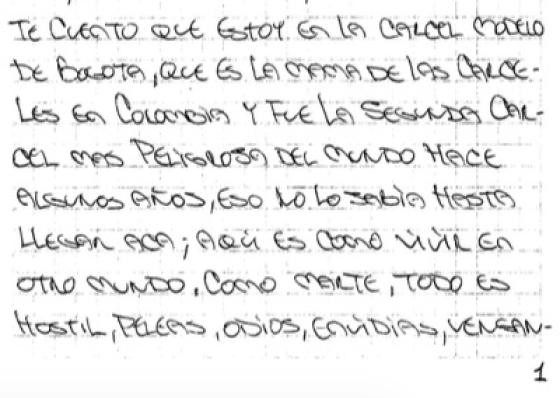 Te cuento que estoy en la carcel modelo
de Bogota, que es la mama de las carce-
les en Colombia y fue la segunda car-
cel mas peligrosa del mundo hace
algunos años, eso no lo sabia hasta
llegar aca; aqui es como vivir en
otro mundo, como marte, todo es
hostil, peleas, odios, envidias, vengan-
1